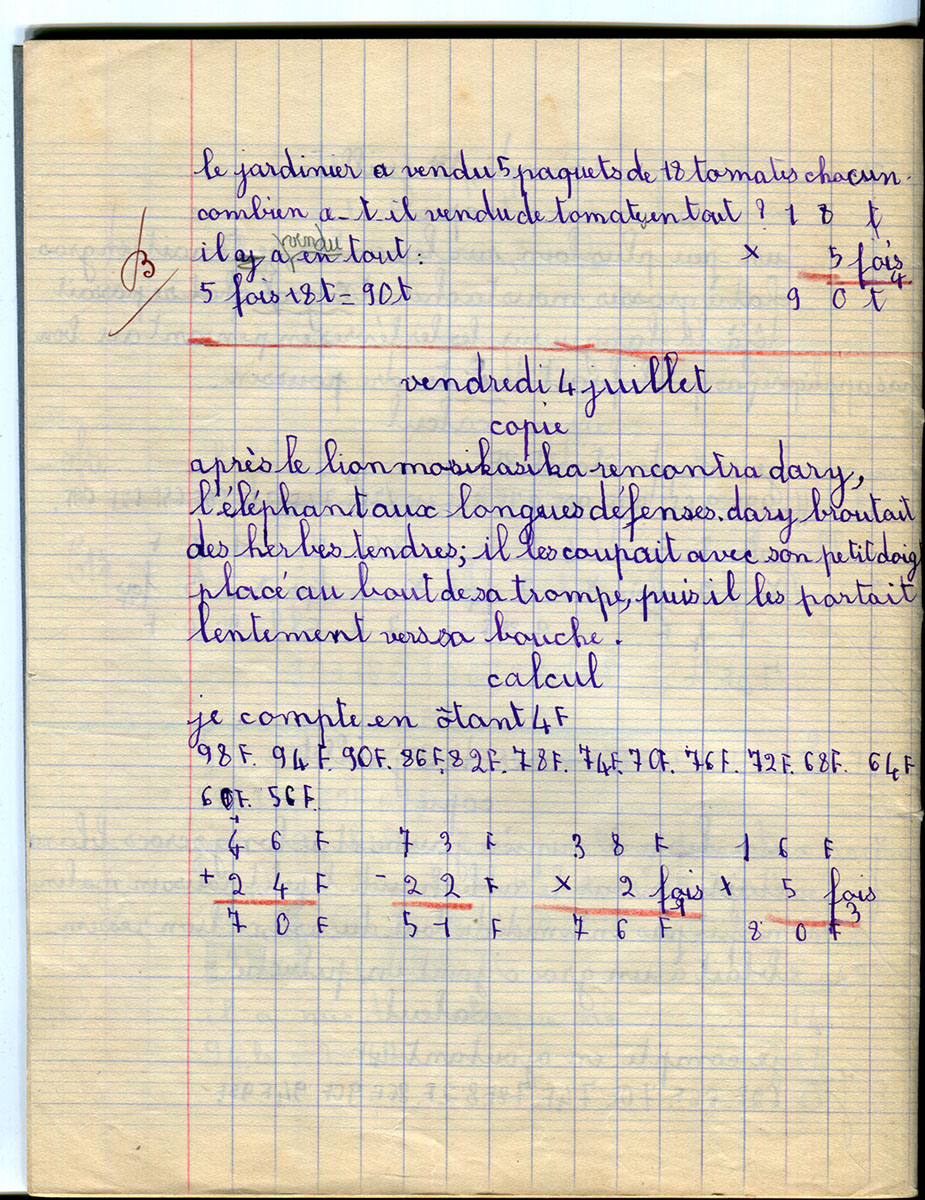 le jardinier a vendu 5 paquets de 18 tomates chacun.
combien a-t il vendu de tomates en tout ? 1 8 t
vendu
il y a en tout : × 5 fois 4
5 fois 18t = 90t 9 0 t
B
vendredi 4 juillet
copie
après le lion masikasika rencontra dary,
l'éléphant aux longues défenses. dary broutait
des herbes tendres; il les coupait avec son petit doig
placé au bout de sa trompe, puis il les portait
lentement vers sa bouche.
calcul
je compte en ôtant 4F
98F. 94F. 90F. 86F. 82F. 78F. 74F. 70F. 76F. 72F. 68F. 64F
60F. 56F.
4 6 F 7 3 F 3 8 F 1 6 F
+ 2 4 F - 2 2 F × 2 fois 1 × 5 fois 3
7 0 F 5 1 F 7 6 F 8 0 F